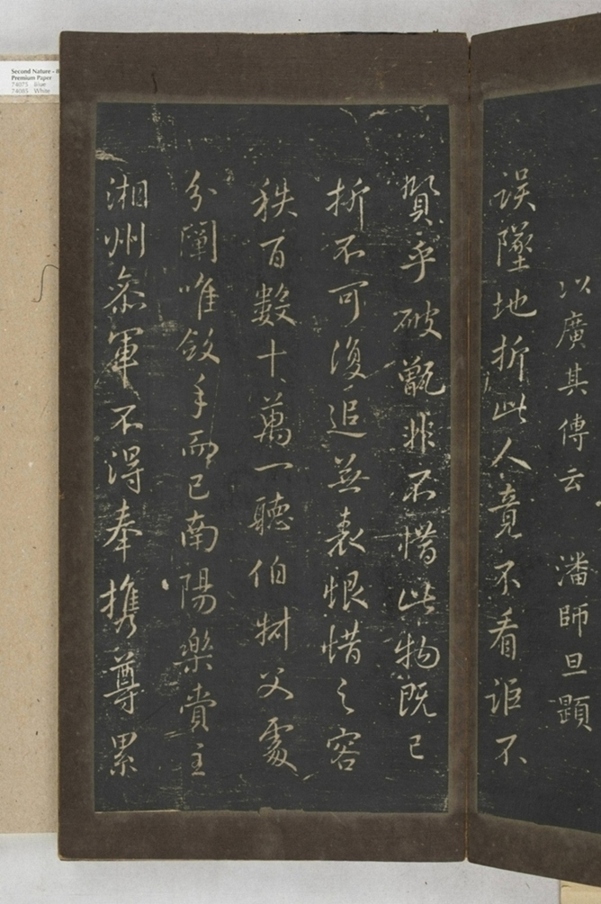 以廣其傳云 潘師旦題
誤墜地折此人竟不看詎不
賢乎破甑非不惜此物既已
折不可復追無表恨惜之容
秩百數十萬一聽伯
父處
分闡唯斂手而已南陽樂賞主
湘州參軍不得奉攜尊累
Second Nature
Premium Paper
74075 Blue
White